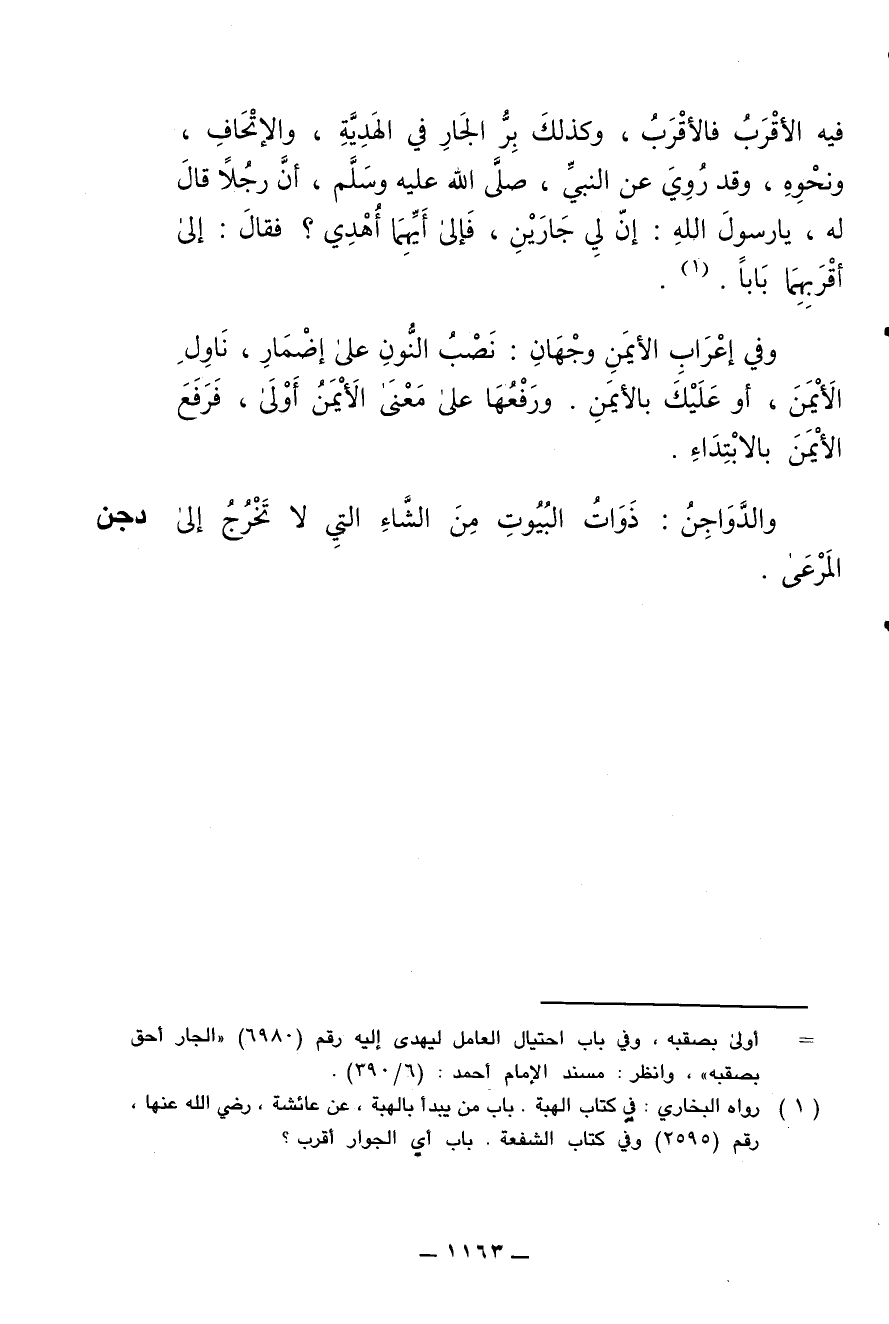 فيه الأقْرَبُ فالأقْرَبُ ، وكذلكَ بِرُّ الجَارِ في الهَدِيَّةِ ، والإتْحَافِ ،
ونحْوِهِ ، وقد رُوِيَ عن النبيِّ ، صلَّى الله عليه وسَلَّم ، أنَّ رجُلاً قالَ
له ، يارسولَ اللهِ : إنّ لِي جَارَيْنِ ، فَإلىٰ أَيِّهِمَا أُهْدِي ؟ فقالَ : إلىٰ
أقْرَبِهِمَا بَاباً . (١) .
وفي إعْرَابِ الأيمَنِ وجْهَانِ : نَصْبُ النُّونِ علىٰ إضْمَارِ ، نَاوِلِ
الَأيْمَنَ ، أو عَلَيْكَ بالأيمَنِ . ورَفْعُهَا علىٰ مَعْنَىٰ الَأيْمَنُ أَوْلَىٰ ، فَرَفَعَ
الأيْمَنَ بالابْتِدَاءِ .
والدَّوَاجِنُ : ذَوَاتُ البُيُوتِ مِنَ الشَّاءِ التيِ لا تَخْرُجُ إلىٰ دجن
المَرْعَىٰ .
= أولىٰ بصقبه ، وفي باب احتيال العامل ليهدى إليه رقم (٦٩٨٠) «الجار أحق
بصقبه» ، وانظر : مسند الإمام أحمد : (٣٩٠/٦) .
(١) رواه البخاري : في كتاب الهبة . باب من يبدأ بالهبة ، عن عائشة ، رضي الله عنها ،
رقم (٢٥٩٥) وفي كتاب الشفعة . باب أي الجوار أقرب ؟
— ١١٦٣ —